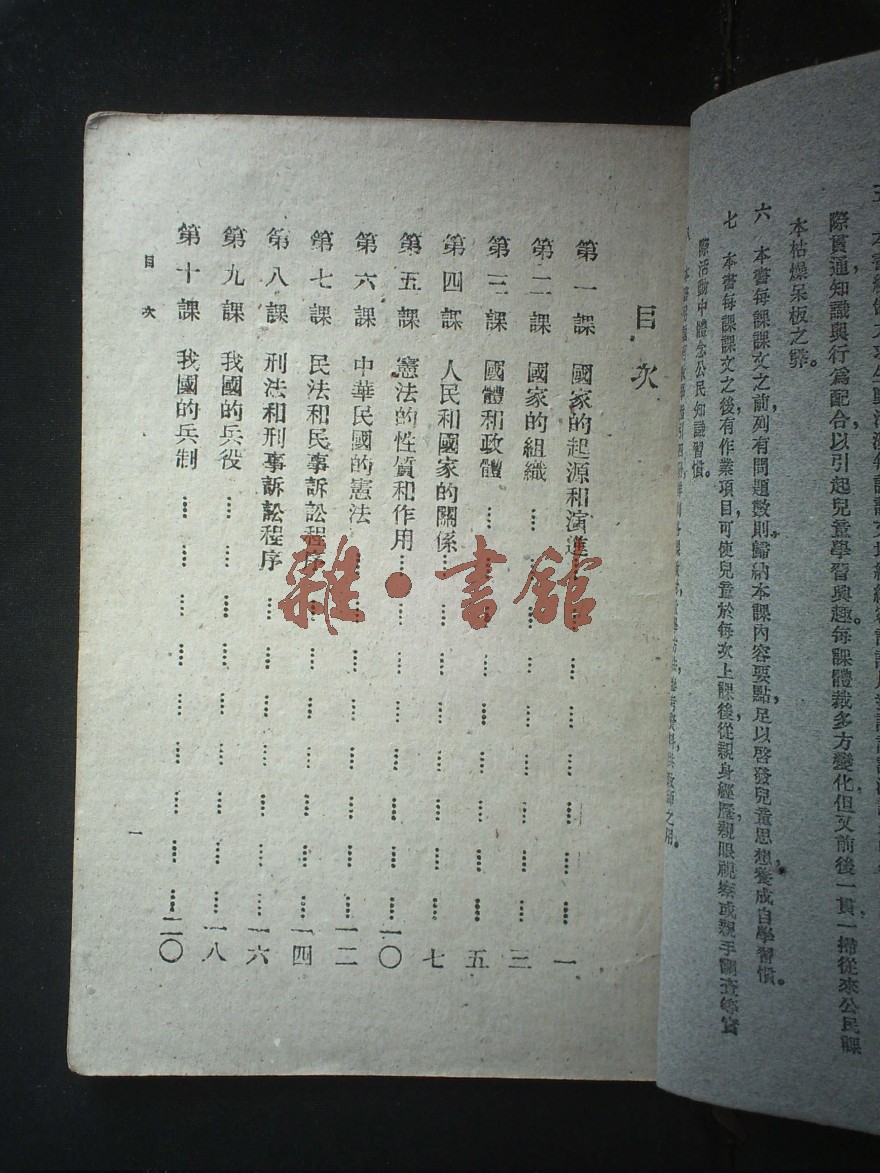 本書每課課文之前列有問題數則歸納本課內容要點足以啓發兒童思想,養成自學習慣。
際貫通知識與行為配合以引起兒童學習興趣每課體裁多方變化但又前後一貫一掃從來公民課
本枯燥呆板之弊。
六 本書每課課文之前列有問題數則歸納本課內容要點足以啓發兒童思想,養成自學習慣。
七 本書每課課文之後有作業項目可使兒童於每次上課後從親身經歷親眼視察或親手調查等實
際活動中體念公民知識習慣。
目次
第一課 國家的起源和演進 一
第二課 國家的組織 三
第三課 國體和政體 五
第四課 人民和國家的關係 七
第五課 憲法的性質和作用 一〇
第六課 中華民國的憲法 一二
第七課 民法和民事訴訟程序 一四
第八課 刑法和刑事訴訟程序 一六
第九課 我國的兵役 一八
第十課 我國的兵制 二〇
目次 一
雜·書館